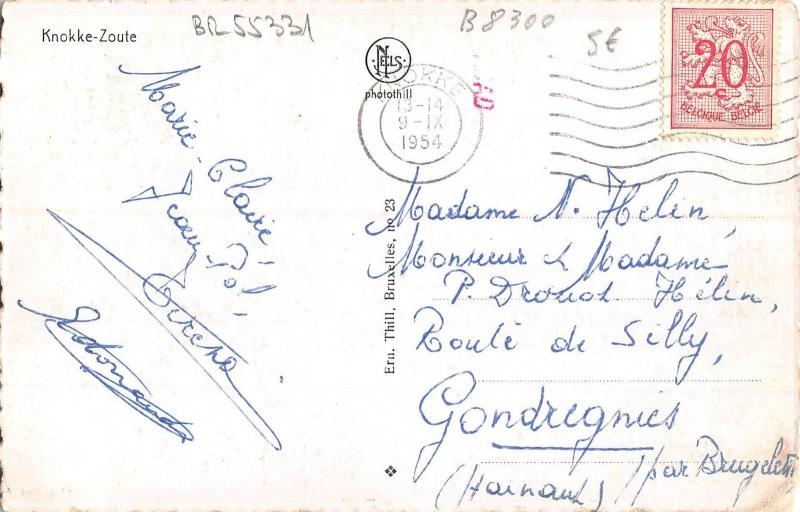 Knokke-Zoute
BR 55331
B 8300
5€
NELS
photothill
KNOKKE
13-14
9-IX
1954
20
BELGIQUE-BELGIË
Marie-Claire,
Jean Pol,
Ern. Thill, Bruxelles, no 23
Madame N. Hélin,
Monsieur & Madame
P. Drouot Hélin,
Route de Silly,
Gondregnies
(Hainaut) (par Brugelette